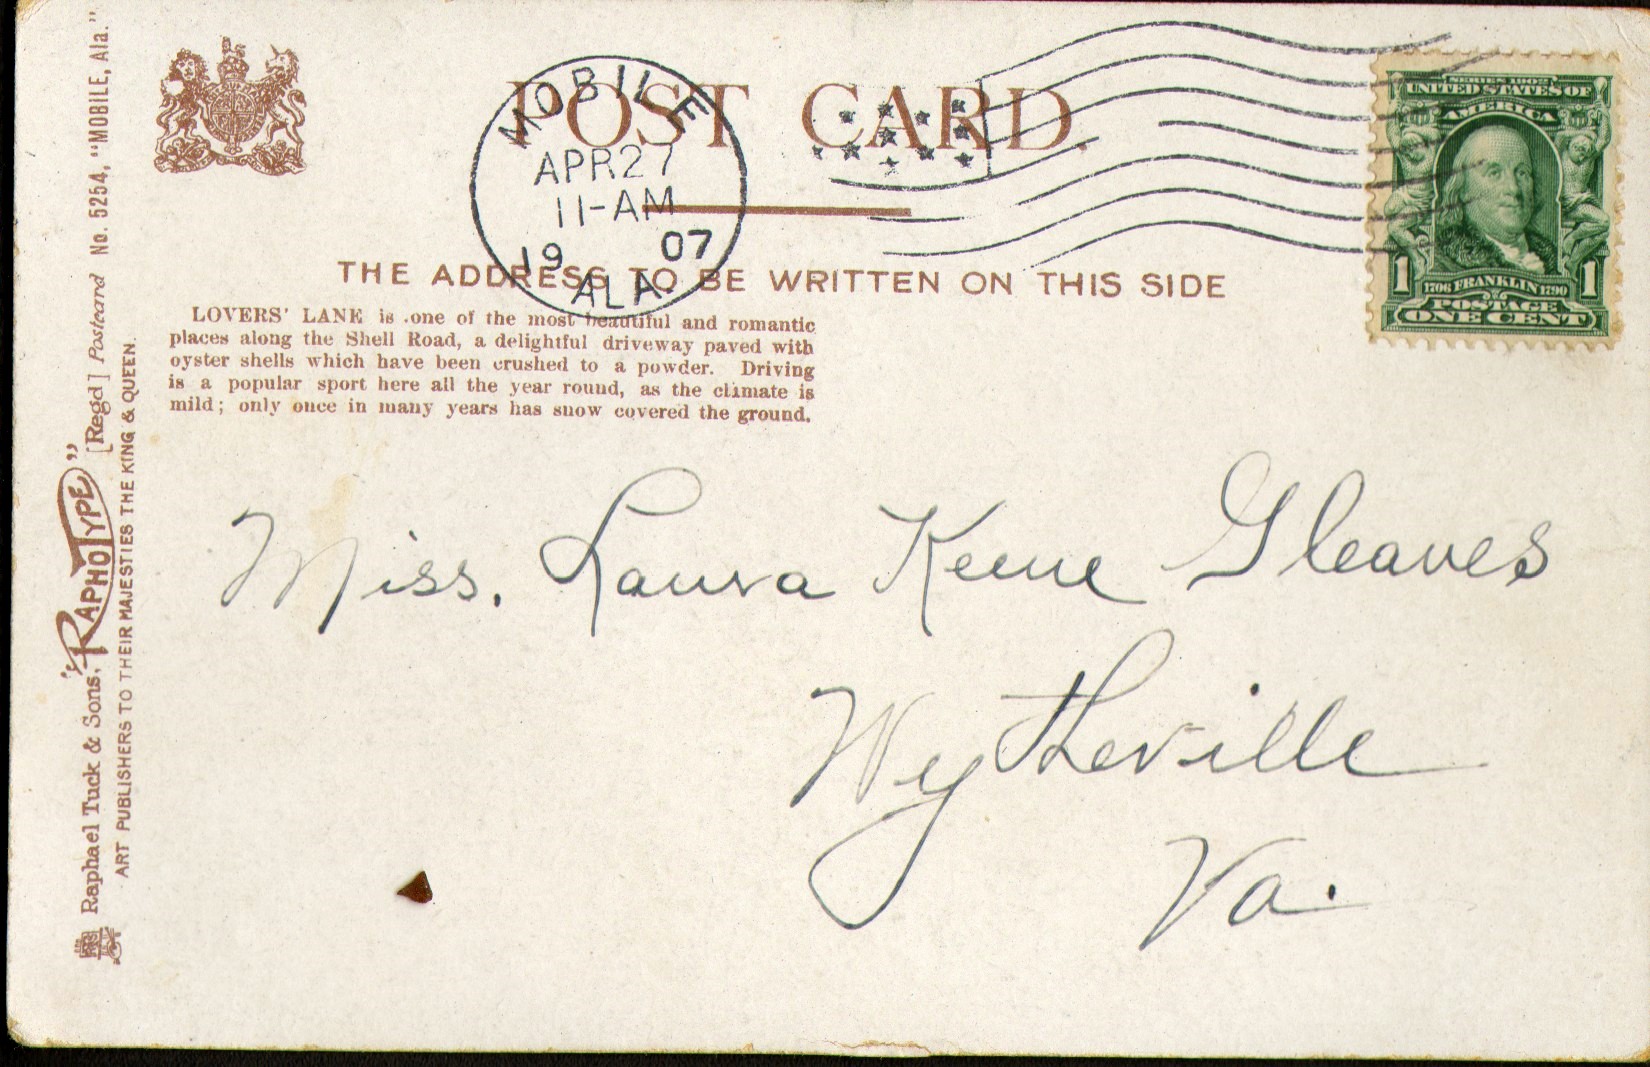 POST CARD.
MOBILE
APR 27
11-AM
19 07
ALA
SERIES 1902
UNITED STATES OF
AMERICA
1 1706 FRANKLIN 1790 1
POSTAGE
ONE CENT
THE ADDRESS TO BE WRITTEN ON THIS SIDE
LOVERS' LANE is one of the most beautiful and romantic
places along the Shell Road, a delightful driveway paved with
oyster shells which have been crushed to a powder. Driving
is a popular sport here all the year round, as the climate is
mild; only once in many years has snow covered the ground.
Miss. Laura Keene Gleaves
Wytheville
Va.
Raphael Tuck & Sons, "RAPHOTYPE" [Regd] Postcard No. 5254, "MOBILE, Ala."
ART PUBLISHERS TO THEIR MAJESTIES THE KING & QUEEN.